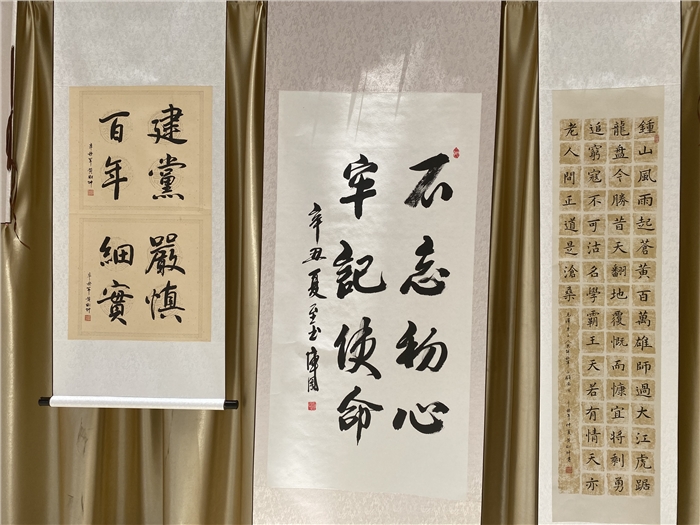 建黨
百年
嚴慎
細實
不忘初心
牢記使命
辛丑夏至书
鍾山風雨起蒼黃百萬雄師過大江虎踞
龍盤今勝昔天翻地覆慨而慷宜將剩勇
追窮寇不可沽名學霸王天若有情天亦
老人間正道是滄桑